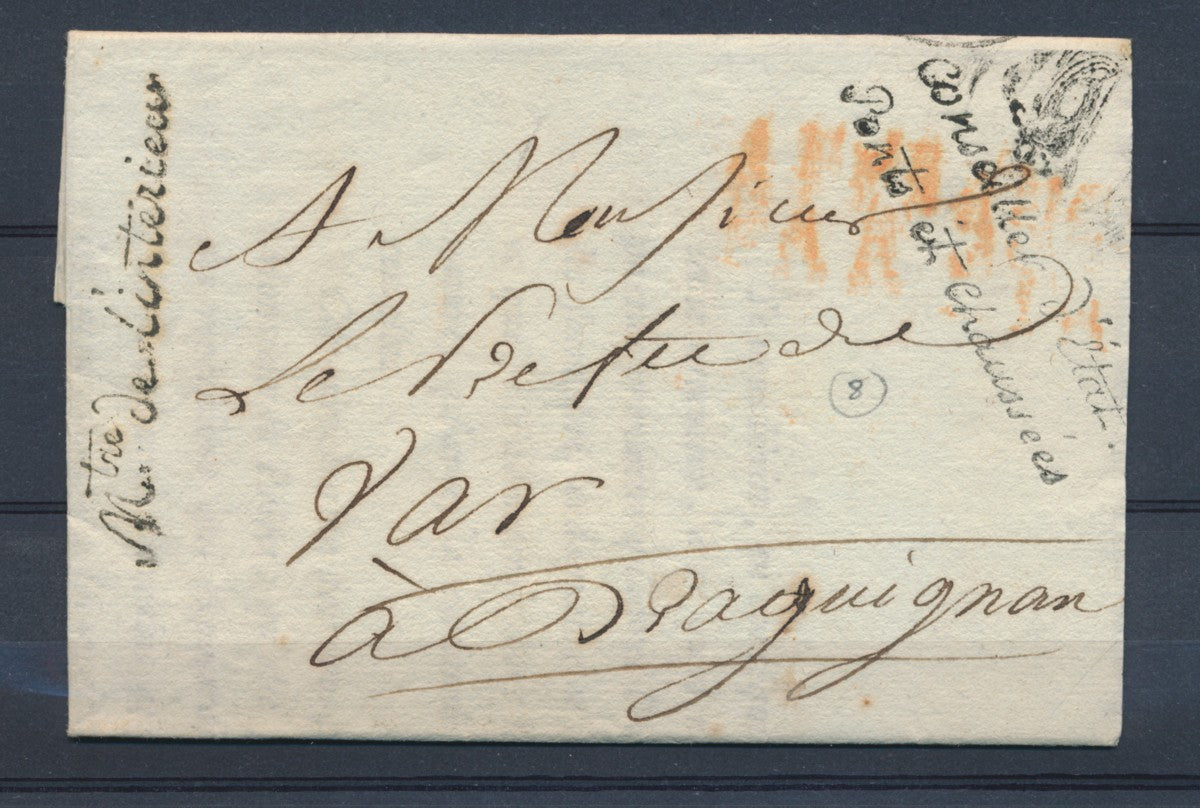 Mtre de L'interieur
Conseiller d'état.
ponts et chaussées
A Monsieur
Le Préfet de
8
Var
à Draguignan